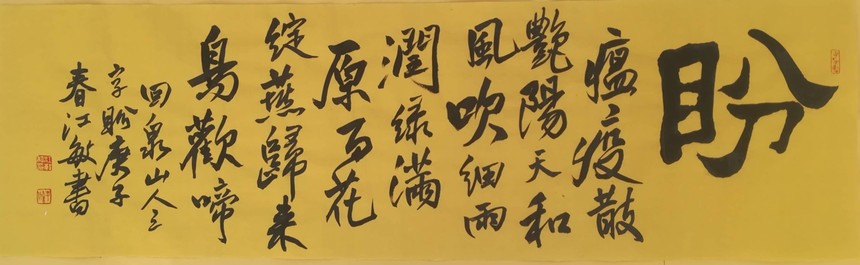 盼
瘟疫散
艷陽天和
風吹细雨
潤绿滿
原百花
绽燕歸来
鳥歡啼
回泉山人三
字盼庚子
春江敏書